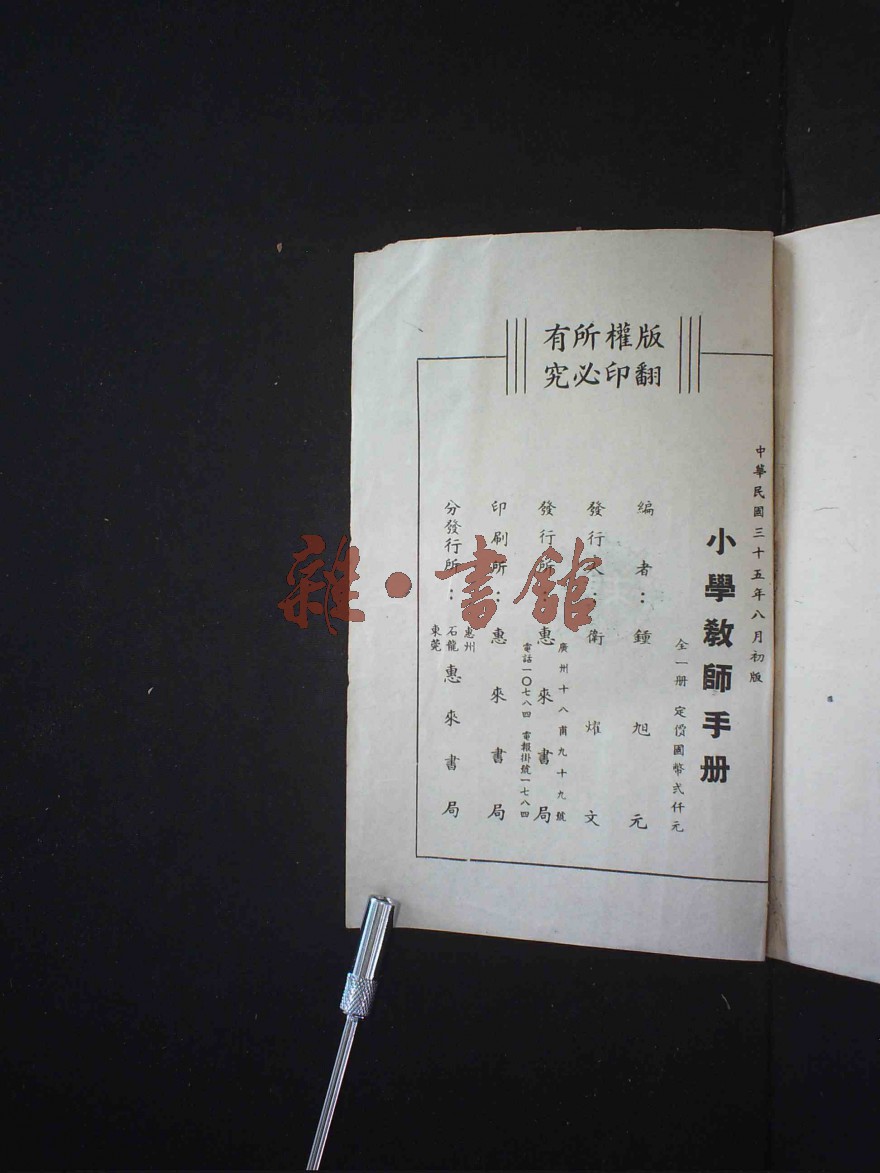 版權所有
翻印必究
中華民國三十五年八月初版
小學教師手册
全一册 定價國幣弍仟元
編者：鍾旭元
發行人：衛燿文
發行所：惠來書局
廣州十八甫九十九號
電話一〇七八四 電報掛號一七八四
印刷所：惠來書局
分發行所：惠州 石龍 東莞 惠來書局
雜·書館